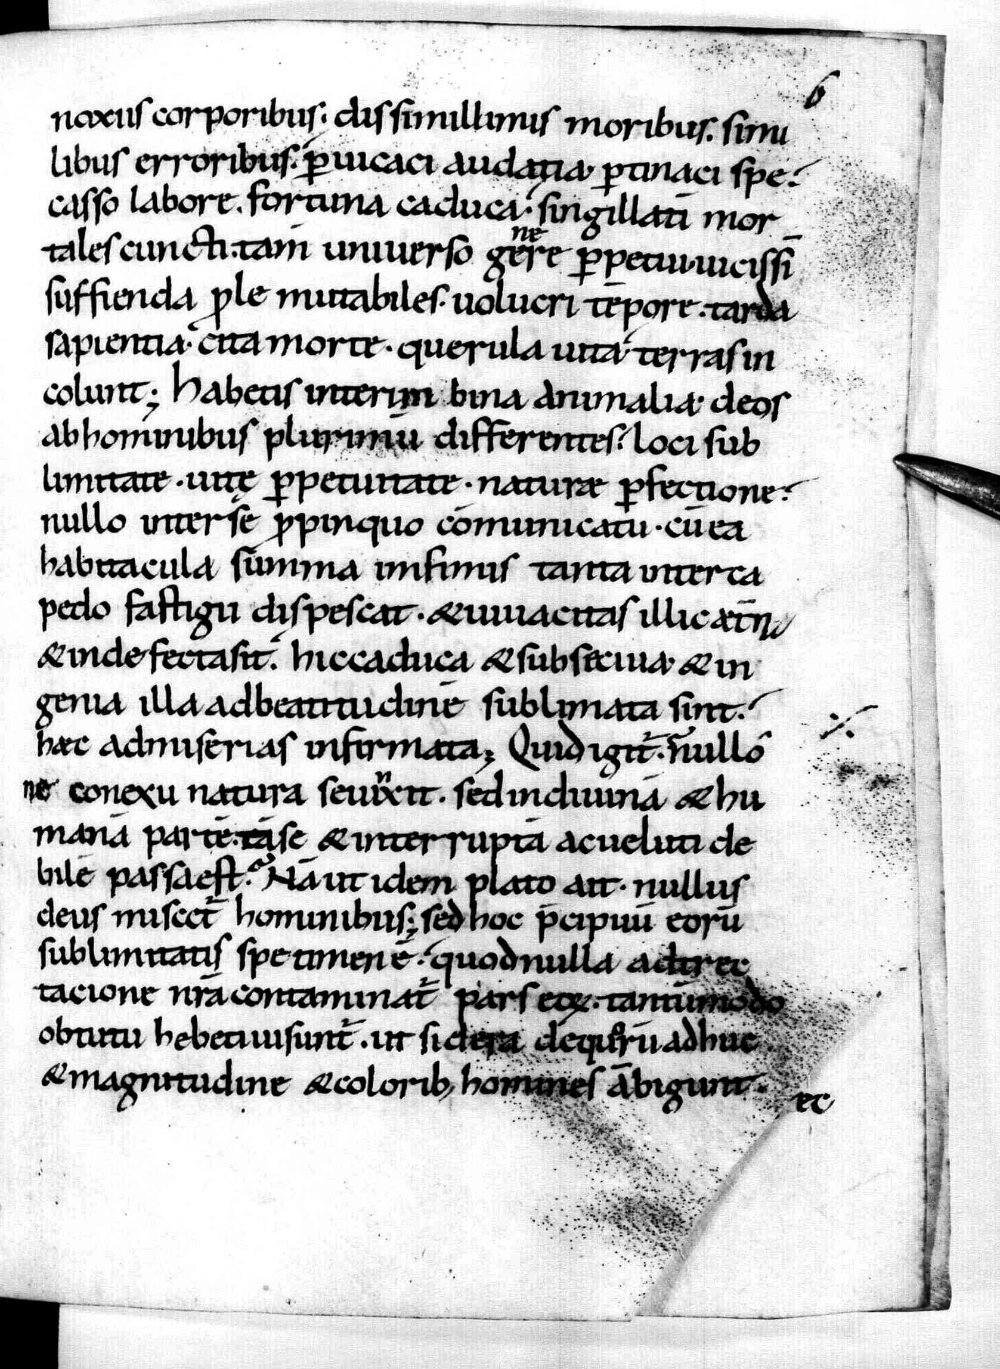 6
noxiis corporibus. dissimillimis moribus. simi
libus erroribus. p̄uicaci audatia p̱tinaci spe.
casso labore. fortuna caduca. singillati mor
tales cuncti. tam̄ uniuerso genere p̱petui. uicissi
ne
suffienda ꝓle mutabiles. uolucri tēpore. tarda
sapientia. cita morte. querula uita terras in
colunt; Habetis interim bina animalia. deos
ab hominibus plurimū differentes. loci sub
limitate. uitę p̱petuitate. naturæ p̱fectione.
nullo inter se ꝓpinquo cōmunicatu. cū ea
habitacula summa infimis tanta interca
pedo fastigii dispescat. & uiuacitas illic ætna
& indefecta sit. hic caduca & subseciua. & in
genia illa ad beatitudinē sublimata sint.
hæc ad miserias infirmata; Quid igit̄. nullo
ne conexu natura se uinxit. sed in diuinā & hu
manā partē. tā se & interruptā ac ueluti de
bilē passa est. Nā ut idem plato ait. nullus
deus miscet̄ hominibus; sed hoc p̄cipuū eorū
sublimitatis spetimen ē. quod nulla adtrec
tacione nr̄a contaminat̄ pars eoꝝ. tantūmodo
obtutu hebeti uisunt̄. ut sidera de quorū adhuc
& magnitudine & colorib; homines ābigunt.
ec